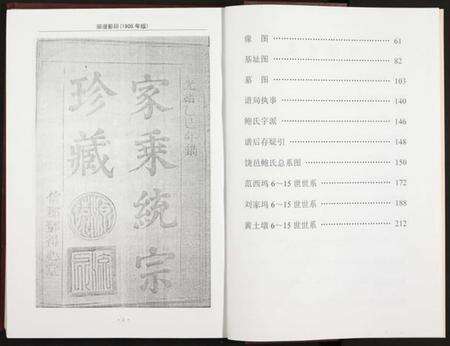 谱牒影印(1905年版)
光绪乙巳年镌
家乘統宗
珍藏
- 2 -
像 图 61
基址图 82
墓 图 103
谱局执事 140
鲍氏字派 146
谱后存疑引 148
饶邑鲍氏总系图 150
范西坞6～15世世系 172
刘家坞6～15世世系 188
黄土墩6～15世世系 212